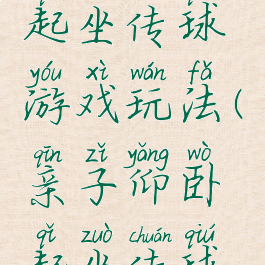 起坐传球
yóu xì wán fǎ
游戏玩法(
qīn zǐ yǎng wò
亲子仰卧
qǐ zuò chuán qiú
起坐传球